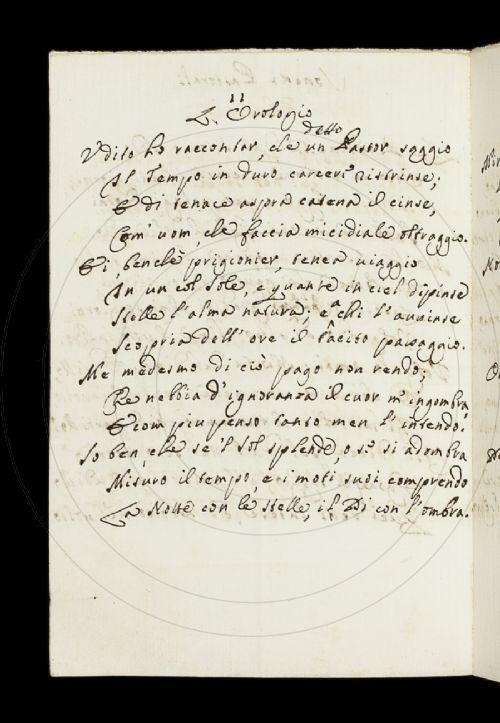 L'Orologio
Udito ho raccontar, che un detto Pastor saggio
Il Tempo in duro carcere ristrinse;
E di tenace aspra catena il cinse,
Com' uom, che faccia micidiale oltraggio.
Ei, benchè prigionier, tenea viaggio
In un col Sole, e quante in ciel dipinse
Stelle l'alma natura; e a chi l'avvinse
Scopria dell' ore il tacito passaggio.
Me medesmo di ciò pago non rendo;
Chè nebbia d'ignoranza il cuor m'ingombra,
E com più penso tanto men l'intendo.
So ben, che se 'l Sol splende, o se si adombra
Misuro il tempo, e i moti suoi comprendo
La Notte con le stelle, il Dì con l'ombra.